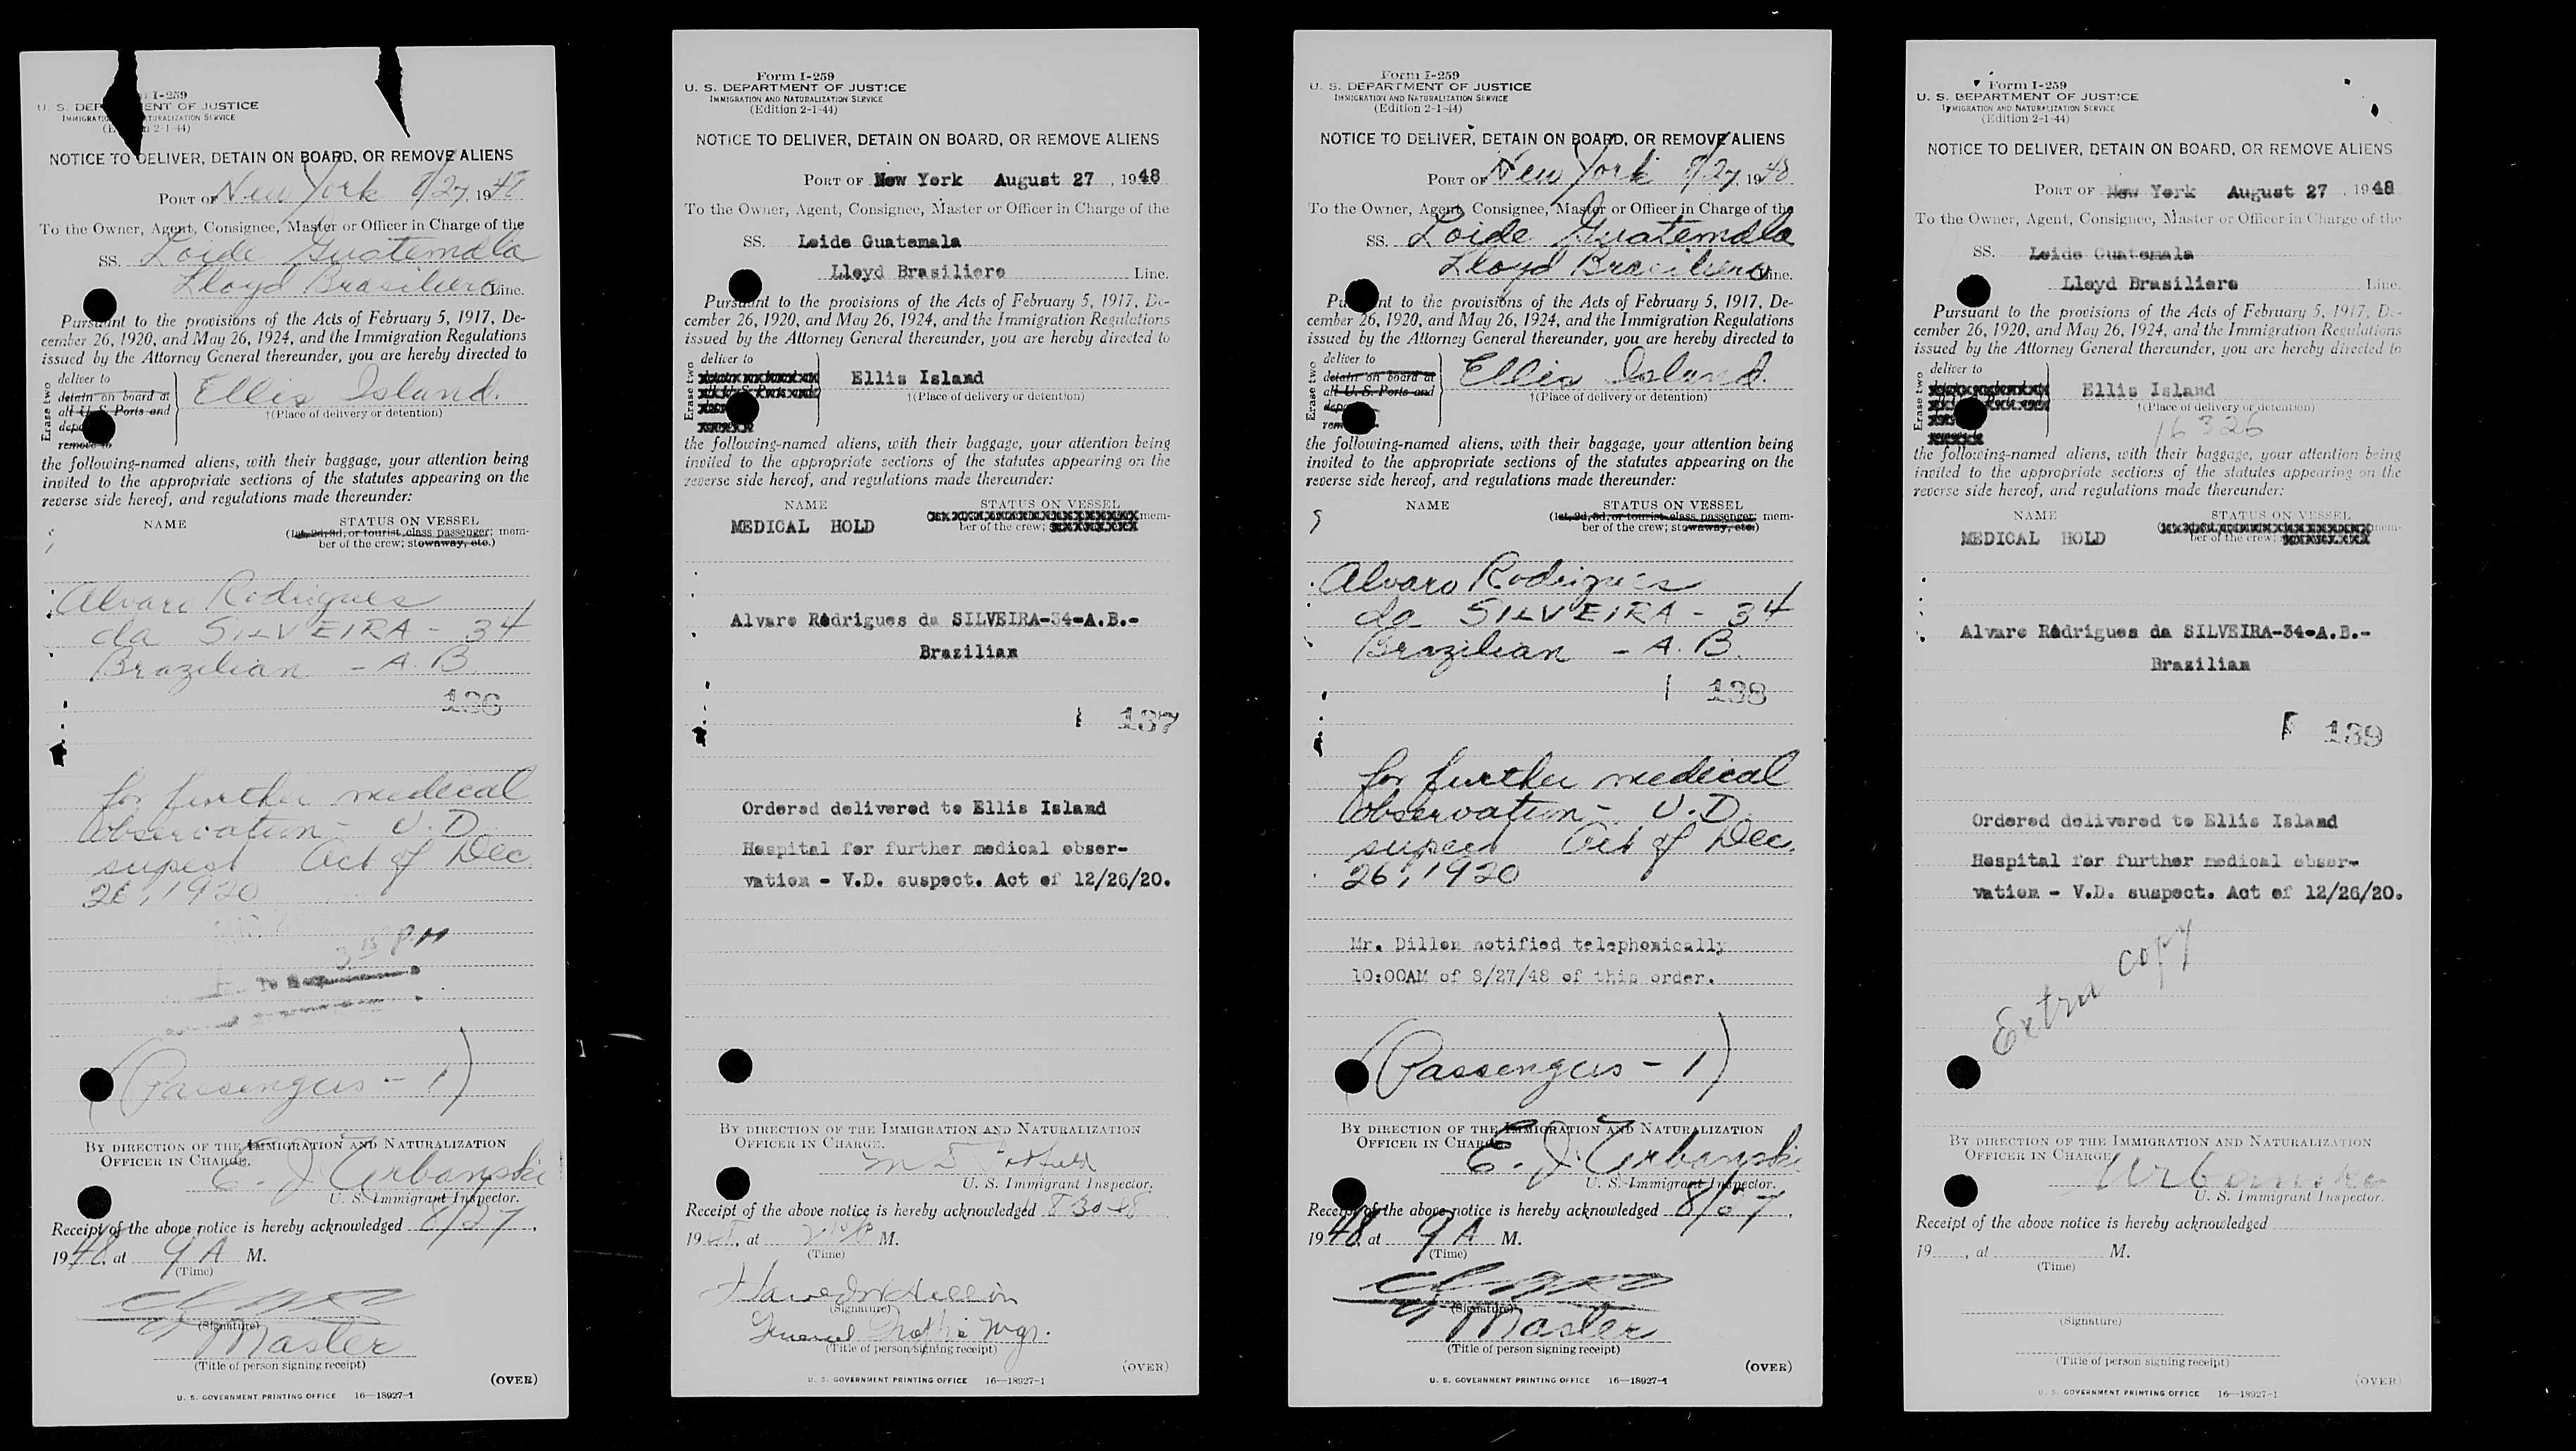 Form I-259
U. S. DEPARTMENT OF JUSTICE
IMMIGRATION AND NATURALIZATION SERVICE
(Edition 2-1-44)
NOTICE TO DELIVER, DETAIN ON BOARD, OR REMOVE ALIENS
PORT OF New York 8/27, 1948
To the Owner, Agent, Consignee, Master or Officer in Charge of the
SS. Loide Guatemala
Lloyd Brasiliero Line.
Pursuant to the provisions of the Acts of February 5, 1917, De-
cember 26, 1920, and May 26, 1924, and the Immigration Regulations
issued by the Attorney General thereunder, you are hereby directed to
Erase two
deliver to
detain on board at
all U. S. Ports and
remove to
Ellis Island.
†(Place of delivery or detention)
the following-named aliens, with their baggage, your attention being
invited to the appropriate sections of the statutes appearing on the
reverse side hereof, and regulations made thereunder:
NAME STATUS ON VESSEL
(1st, 2d, 3d, or tourist class passenger; mem-
ber of the crew; stowaway, etc.)
Alvaro Rodrigues
da SILVEIRA - 34
Brazilian - A. B.
136
for further medical
observation - V. D.
supect Act of Dec.
26, 1920
3 15 PM
(Passengers - 1)
BY DIRECTION OF THE IMMIGRATION AND NATURALIZATION
OFFICER IN CHARGE.
E. J. Urbanski
U. S. Immigrant Inspector.
Receipt of the above notice is hereby acknowledged 8/27,
1948, at 9 A M.
(Time)
(Signature)
Master
(Title of person signing receipt)
(OVER)
U. S. GOVERNMENT PRINTING OFFICE 16—18927-1
Form I-259
U. S. DEPARTMENT OF JUSTICE
IMMIGRATION AND NATURALIZATION SERVICE
(Edition 2-1-44)
NOTICE TO DELIVER, DETAIN ON BOARD, OR REMOVE ALIENS
PORT OF New York August 27, 1948
To the Owner, Agent, Consignee, Master or Officer in Charge of the
SS. Loide Guatemala
Lloyd Brasiliero Line.
Pursuant to the provisions of the Acts of February 5, 1917, De-
cember 26, 1920, and May 26, 1924, and the Immigration Regulations
issued by the Attorney General thereunder, you are hereby directed to
Erase two
deliver to
Ellis Island
†(Place of delivery or detention)
the following-named aliens, with their baggage, your attention being
invited to the appropriate sections of the statutes appearing on the
reverse side hereof, and regulations made thereunder:
NAME STATUS ON VESSEL
mem-
MEDICAL HOLD ber of the crew;
Alvaro Rodrigues da SILVEIRA-34-A.B.-
Brazilian
137
Ordered delivered to Ellis Island
Hospital for further medical obser-
vation - V.D. suspect. Act of 12/26/20.
BY DIRECTION OF THE IMMIGRATION AND NATURALIZATION
OFFICER IN CHARGE.
U. S. Immigrant Inspector.
Receipt of the above notice is hereby acknowledged 8-30-48
1948, at M.
(Time)
(Signature)
General Mgr.
(Title of person signing receipt)
(OVER)
U. S. GOVERNMENT PRINTING OFFICE 16—18927-1
Form I-259
U. S. DEPARTMENT OF JUSTICE
IMMIGRATION AND NATURALIZATION SERVICE
(Edition 2-1-44)
NOTICE TO DELIVER, DETAIN ON BOARD, OR REMOVE ALIENS
PORT OF New York 8/27, 1948
To the Owner, Agent, Consignee, Master or Officer in Charge of the
SS. Loide Guatemala
Lloyd Brasiliero Line.
Pursuant to the provisions of the Acts of February 5, 1917, De-
cember 26, 1920, and May 26, 1924, and the Immigration Regulations
issued by the Attorney General thereunder, you are hereby directed to
Erase two
deliver to
detain on board at
all U. S. Ports and
Ellis Island.
†(Place of delivery or detention)
the following-named aliens, with their baggage, your attention being
invited to the appropriate sections of the statutes appearing on the
reverse side hereof, and regulations made thereunder:
NAME STATUS ON VESSEL
(1st, 2d, 3d, or tourist class passenger; mem-
ber of the crew; stowaway, etc.)
Alvaro Rodrigues
da SILVEIRA - 34
Brazilian - A. B.
138
for further medical
observation - V. D.
supect Act of Dec.
26, 1920
Mr. Dillon notified telephonically
10:00AM of 8/27/48 of this order.
(Passengers - 1)
BY DIRECTION OF THE IMMIGRATION AND NATURALIZATION
OFFICER IN CHARGE.
E. J. Urbanski
U. S. Immigrant Inspector.
Receipt of the above notice is hereby acknowledged 8/27,
1948, at 9 A M.
(Time)
(Signature)
Master
(Title of person signing receipt)
(OVER)
U. S. GOVERNMENT PRINTING OFFICE 16—18927-1
Form I-259
U. S. DEPARTMENT OF JUSTICE
IMMIGRATION AND NATURALIZATION SERVICE
(Edition 2-1-44)
NOTICE TO DELIVER, DETAIN ON BOARD, OR REMOVE ALIENS
PORT OF New York August 27, 1948
To the Owner, Agent, Consignee, Master or Officer in Charge of the
SS. Loide Guatemala
Lloyd Brasiliero Line.
Pursuant to the provisions of the Acts of February 5, 1917, De-
cember 26, 1920, and May 26, 1924, and the Immigration Regulations
issued by the Attorney General thereunder, you are hereby directed to
Erase two
deliver to
Ellis Island
†(Place of delivery or detention)
16326
the following-named aliens, with their baggage, your attention being
invited to the appropriate sections of the statutes appearing on the
reverse side hereof, and regulations made thereunder:
NAME STATUS ON VESSEL
mem-
MEDICAL HOLD ber of the crew;
Alvaro Rodrigues da SILVEIRA-34-A.B.-
Brazilian
139
Ordered delivered to Ellis Island
Hospital for further medical obser-
vation - V.D. suspect. Act of 12/26/20.
Extra copy
BY DIRECTION OF THE IMMIGRATION AND NATURALIZATION
OFFICER IN CHARGE.
Urbanski
U. S. Immigrant Inspector.
Receipt of the above notice is hereby acknowledged
19 , at M.
(Time)
(Signature)
(Title of person signing receipt)
(OVER)
U. S. GOVERNMENT PRINTING OFFICE 16—18927-1